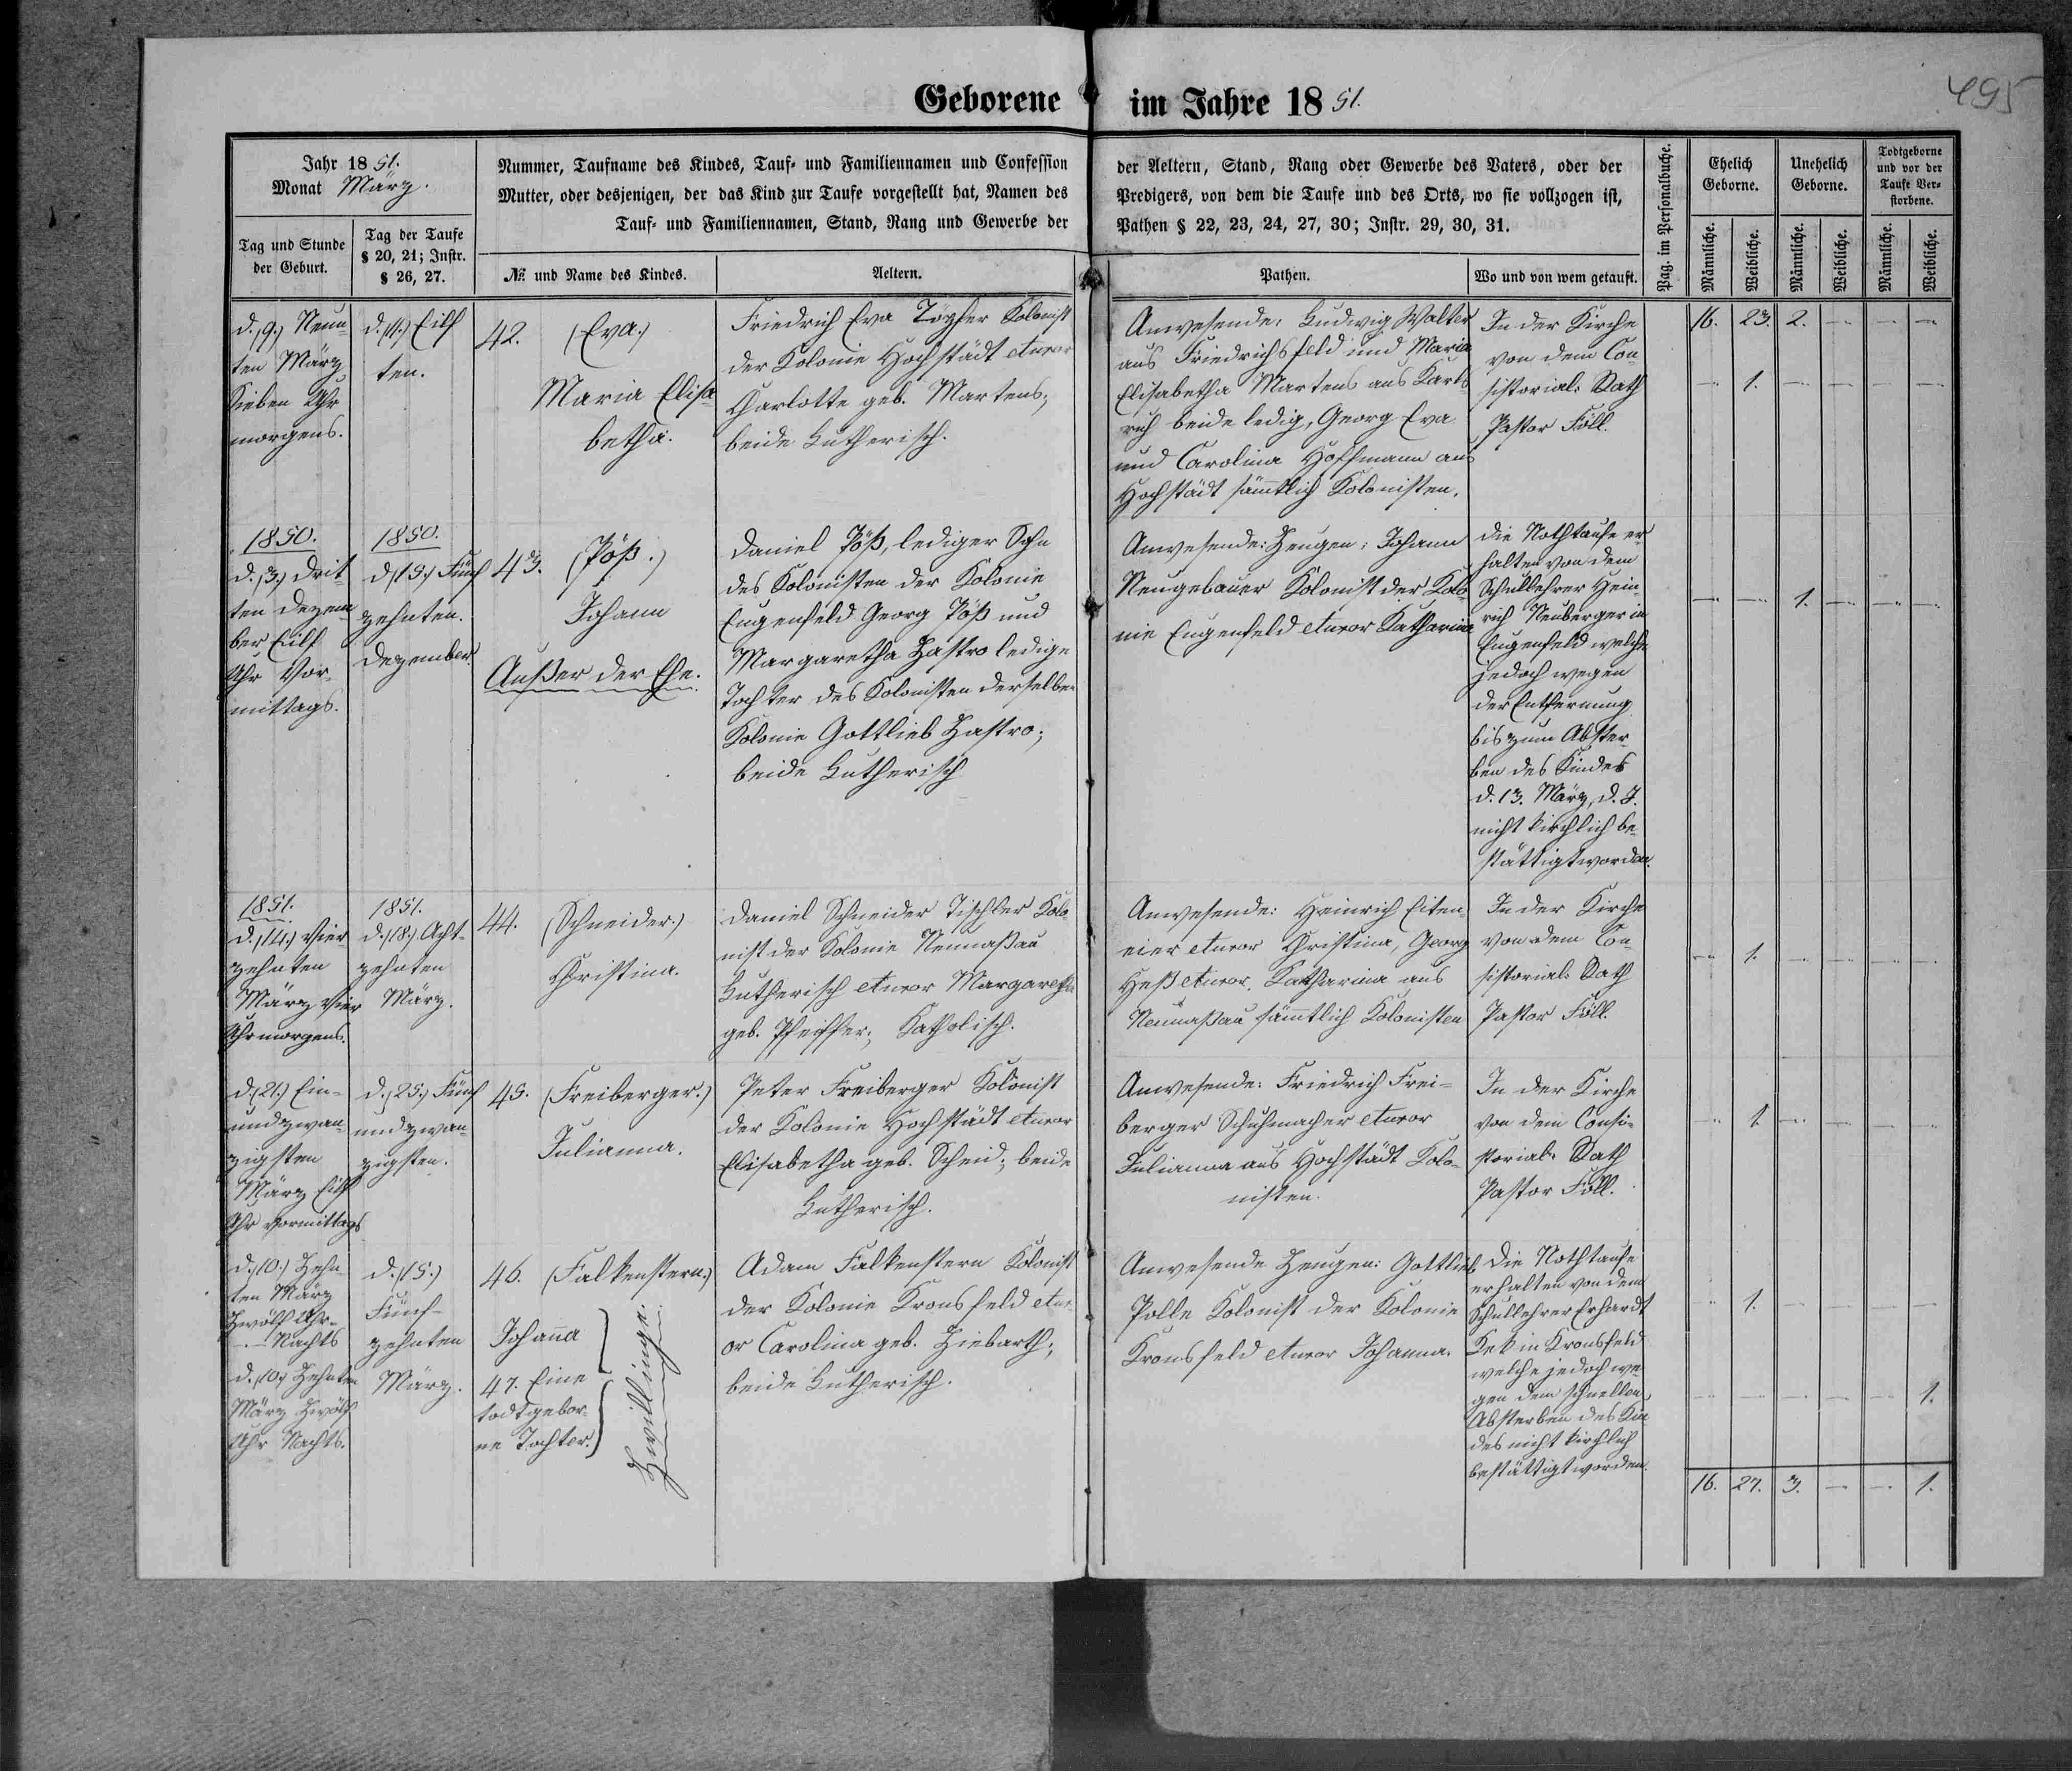 495
Geborene im Jahre 1851.
Jahr 1851.
Monat März.
Tag und Stunde
der Geburt.
Tag der Taufe
§ 20, 21; Instr.
§ 26, 27.
Nummer, Taufname des Kindes, Tauf- und Familiennamen und Confession
Mutter, oder desjenigen, der das Kind zur Taufe vorgestellt hat, Namen des
Tauf- und Familiennamen, Stand, Rang und Gewerbe der
№ und Name des Kindes.
Aeltern.
der Aeltern, Stand, Rang oder Gewerbe des Vaters, oder der
Predigers, von dem die Taufe und des Orts, wo sie vollzogen ist,
Pathen § 22, 23, 24, 27, 30; Instr. 29, 30, 31.
Pathen.
Wo und von wem getauft.
Pag. im Personalbuche.
Ehelich
Geborne.
Unehelich
Geborne.
Todtgeborne
und vor der
Taufe Ver-
storbene.
Männliche.
Weibliche.
Männliche.
Weibliche.
Männliche.
Weibliche.
d. (9.) Neun-
ten März
Sieben Uhr
morgens.
d. (11.) Eilf
ten.
42. (Eva.)
Maria Elisa-
betha.
Friedrich Eva Töpfer Kolonist
der Kolonie Hochstädt et uxor
Charlotte geb. Martens;
beide Lutherisch.
Anwesende: Ludwig Walter
aus Friedrichsfeld und Maria
Elisabetha Martens aus Karls-
ruh beide ledig, Georg Eva
und Carolina Hoffmann aus
Hochstädt sämtlich Kolonisten.
In der Kirche
von dem Con-
sistorial-Rath
Pastor Föll.
16. 23. 2. — — —
— 1. — — — —
1850.
d. (3.) Drit-
ten Dezem-
ber Eilf
Uhr Vor-
mittags.
1850.
d. (15.) Fünf
zehnten.
Dezember.
43. (Pöß.)
Johann
Außer der Ehe.
Daniel Pöß, lediger Sohn
des Kolonisten der Kolonie
Eugenfeld Georg Pöß und
Margaretha Hastro ledige
Tochter des Kolonisten derselben
Kolonie Gottlieb Hastro;
beide Lutherisch
Anwesende: Zeugen: Johann
Neugebauer Kolonist der Kolo-
nie Eugenfeld et uxor Katharina
Die Nothtaufe er-
halten von dem
Schullehrer Hein-
rich Neuberger in
Eugenfeld welche
jedoch wegen
der Entfernung
bis zum Abster-
ben des Kindes
d. 13. März, d. J.
nicht kirchlich be-
stättigt worden.
— — 1. — — —
1851.
d. (14.) Vier
zehnten
März Vier
Uhr morgens.
1851.
d. (18.) Acht-
zehnten
März.
44. (Schneider.)
Christina.
Daniel Schneider Tischler Kolo-
nist der Kolonie Neunaßau
Lutherisch et uxor Margaretha
geb. Pfeiffer; Katholisch.
Anwesende: Heinrich Eiten-
eier et uxor Christina, Georg
Heß et uxor Katharina aus
Neunaßau sämtlich Kolonisten
In der Kirche
von dem Con-
sistorial-Rath
Pastor Föll.
— 1. — — — —
d. (21.) Ein-
undzwan-
zigsten
März Eilf
Uhr vormittags
d. (25.) Fünf
undzwan-
zigsten.
45. (Freiberger.)
Julianna.
Peter Freiberger Kolonist
der Kolonie Hochstädt et uxor
Elisabetha geb. Scheid; beide
Lutherisch.
Anwesende: Friedrich Frei-
berger Schuhmacher et uxor
Julianna aus Hochstädt Kolo-
nisten.
In der Kirche
von dem Consi-
storial-Rath
Pastor Föll.
— 1 — — — —
d. (10.) Zehn-
ten März
Zwölf Uhr
Nachts
d. (10.) Zehnten
März Zwölf
Uhr Nachts.
d. (15.)
Fünf-
zehnten
März.
46. (Falkenstern.)
Johanna
47. Eine
todtgebor-
ne Tochter.
Zwillinge.
Adam Falkenstern Kolonist
der Kolonie Kronsfeld et ux-
or Carolina geb. Ziebarth;
beide Lutherisch.
Anwesende Zeugen: Gottlieb
Polle Kolonist der Kolonie
Kronsfeld et uxor Johanna.
Die Nothtaufe
erhalten von dem
Schullehrer Erhardt
Kek in Kronsfeld
welche jedoch we-
gen dem schnellen
Absterben des Kin-
des nicht kirchlich
bestättigt worden.
— 1. — — — —
— — — — — 1.
16. 27. 3. — — 1.